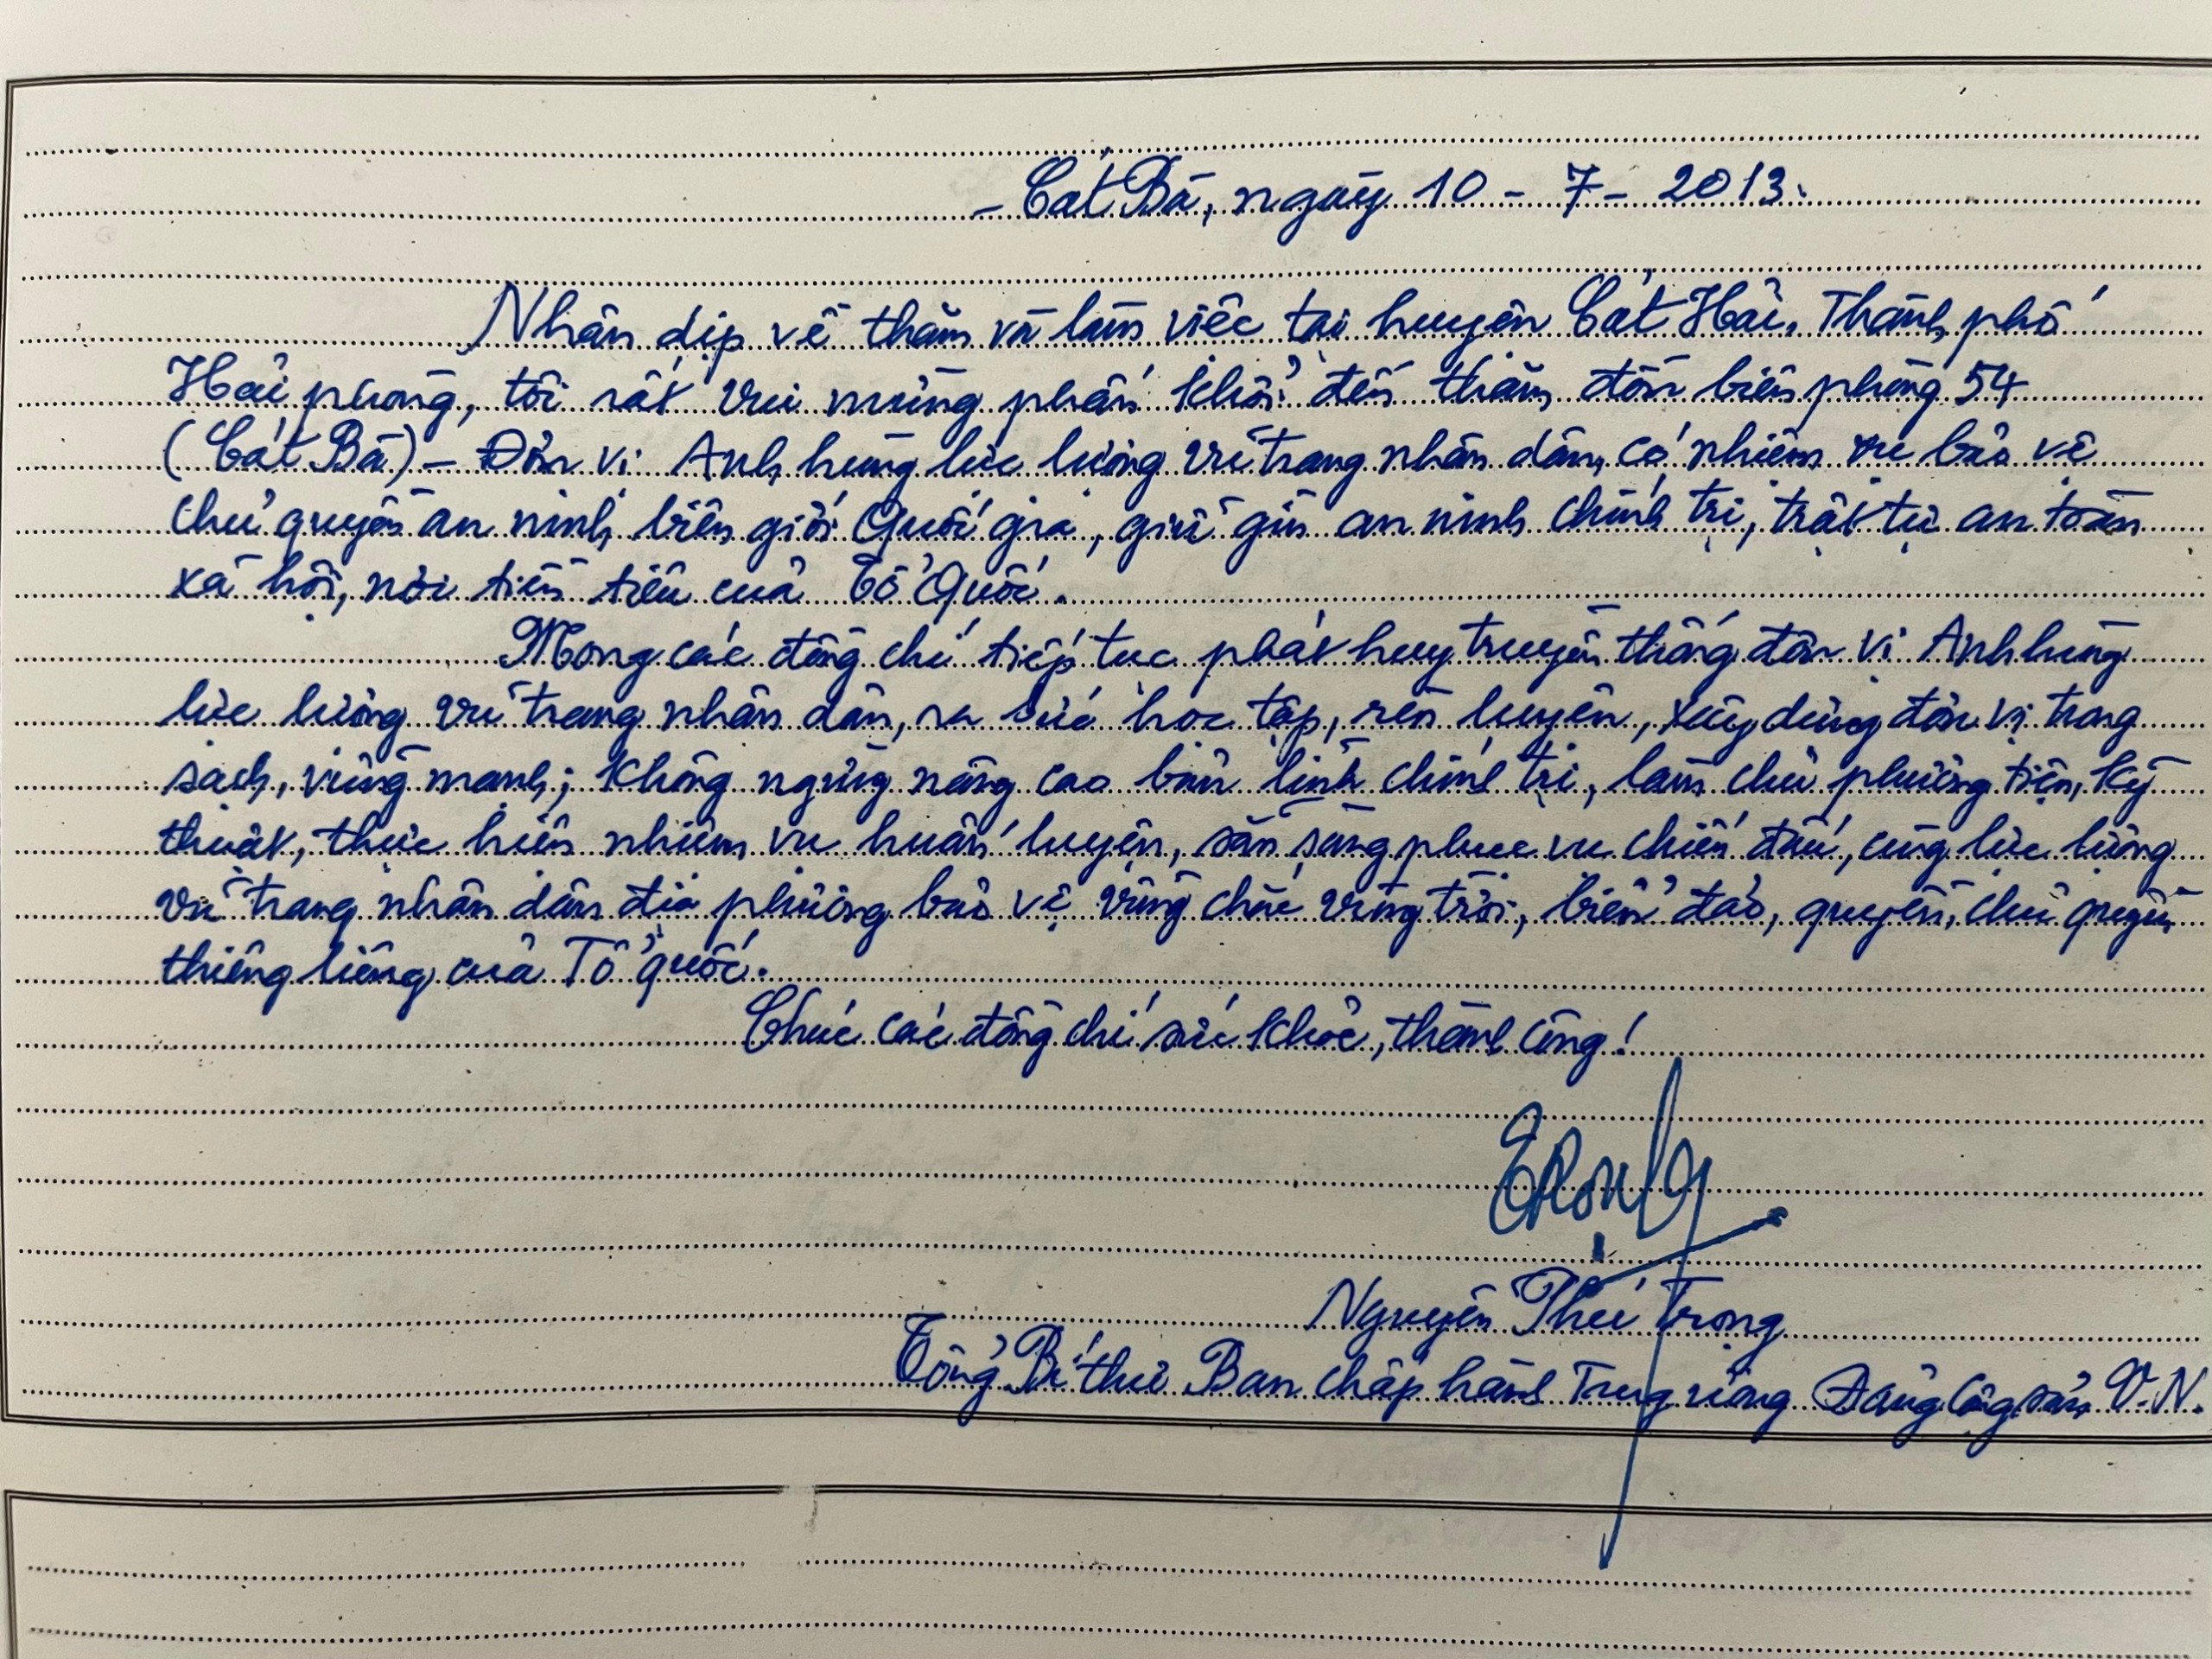 - Cát Bà, ngày 10 - 7 - 2013.
Nhân dịp về thăm và làm việc tại huyện Cát Hải, Thành phố
Hải phòng, tôi rất vui mừng phấn khởi đến thăm đồn biên phòng 54
(Cát Bà) - Đơn vị Anh hùng lực lượng vũ trang nhân dân, có nhiệm vụ bảo vệ
chủ quyền an ninh biên giới Quốc gia, giữ gìn an ninh chính trị, trật tự an toàn
xã hội, nơi tiền tiêu của Tổ Quốc.
Mong các đồng chí tiếp tục phát huy truyền thống đơn vị Anh hùng
lực lượng vũ trang nhân dân, ra sức học tập, rèn luyện, xây dựng đơn vị trong
sạch, vững mạnh; không ngừng nâng cao bản lĩnh chính trị, làm chủ phương tiện, kỹ
thuật, thực hiện nhiệm vụ huấn luyện, sẵn sàng phục vụ chiến đấu, cùng lực lượng
vũ trang nhân dân địa phương bảo vệ vững chắc vùng trời, biển đảo, quyền, chủ quyền
thiêng liêng của Tổ quốc.
Chúc các đồng chí sức khỏe, thành công!
Trọng
Nguyễn Phú Trọng
Tổng Bí thư Ban chấp hành Trung ương Đảng Cộng sản V.N.